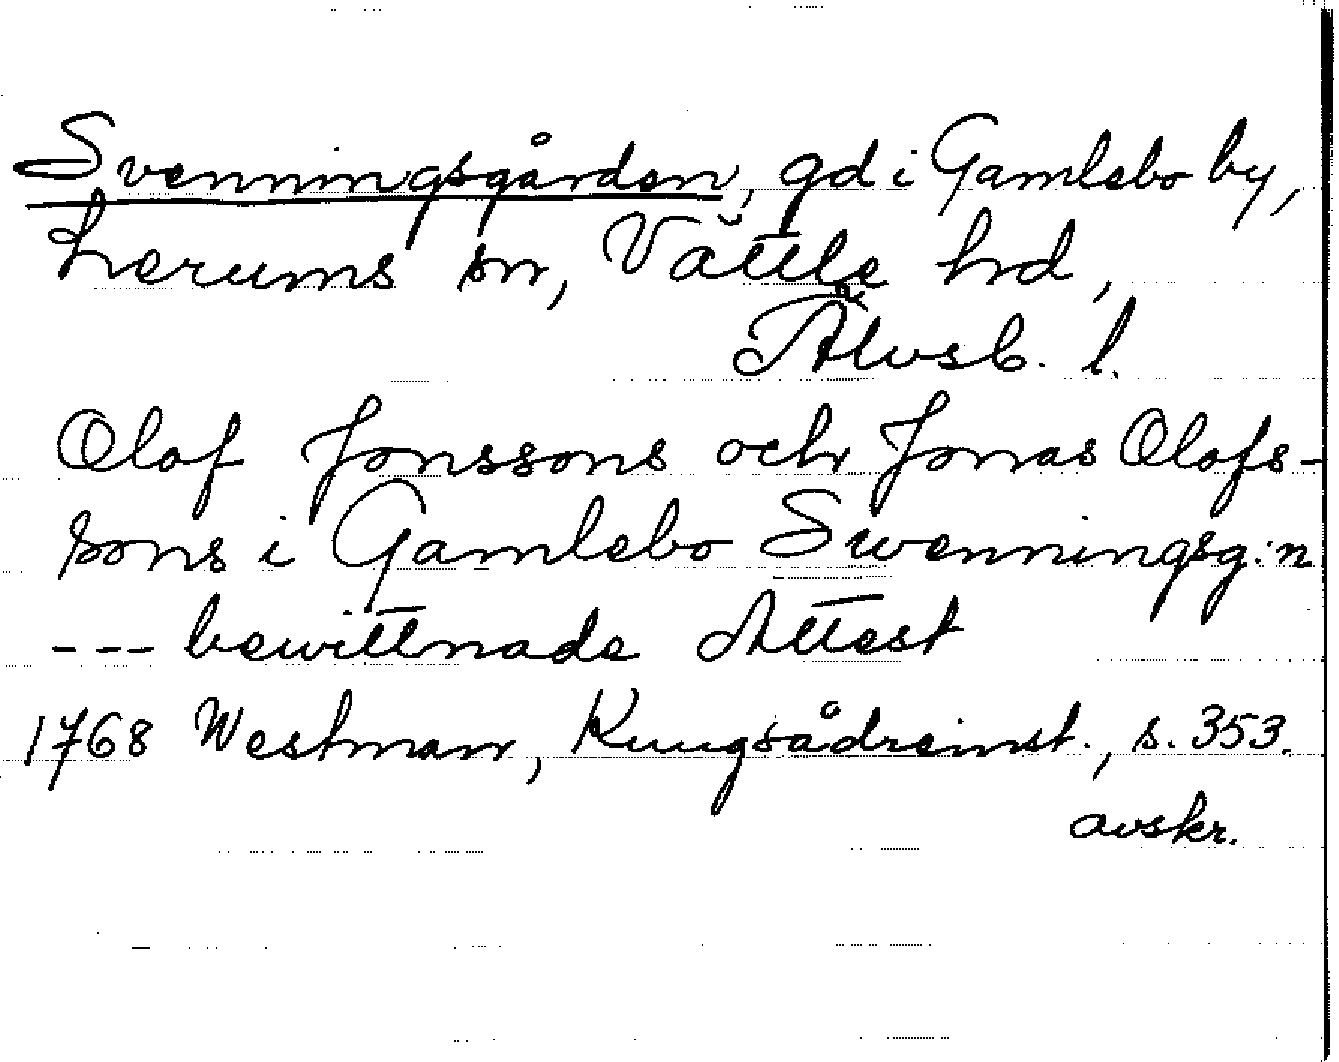 Svenningsgården, gd i Gamlebo by,
Lerums sn, Vättle hd,
Älvsb. l.
Olof Jonssons och Jonas Olofs-
sons i Gamlebo Swenningsg:n
--- bewittnade Attest
1768 Westman, Kungsådreinst., s. 353.
avskr.